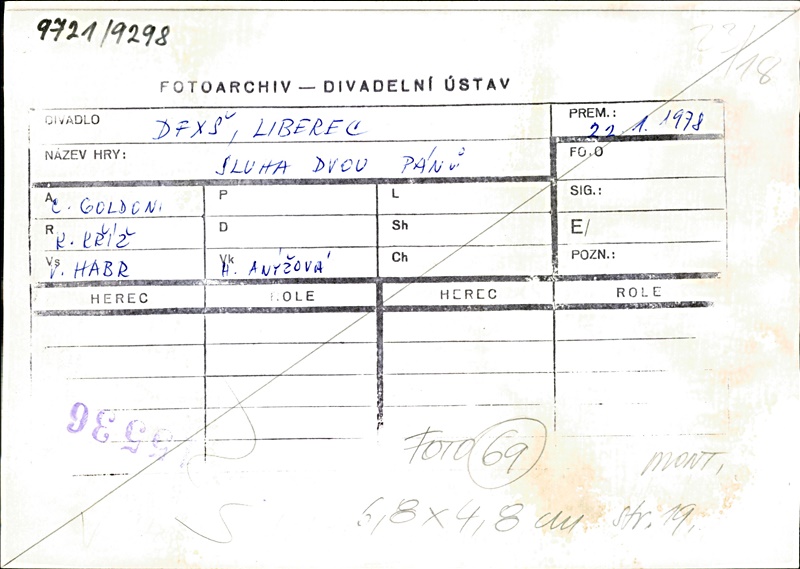 9721/9298
FOTOARCHIV — DIVADELNÍ ÚSTAV
DIVADLO DFXŠ, LIBEREC
PREM.: 22 1. 1978
NÁZEV HRY: SLUHA DVOU PÁNŮ
FOTO
A C. GOLDONI
P
L
SIG.:
R K. KŘÍŽ
D
Sh
E/
Vs V. HABR
Vk A. ANÝŽOVÁ
Ch
POZN.:
HEREC ROLE HEREC ROLE
FOTO 69
MONT.
5,8 x 4,8 cm str. 19.